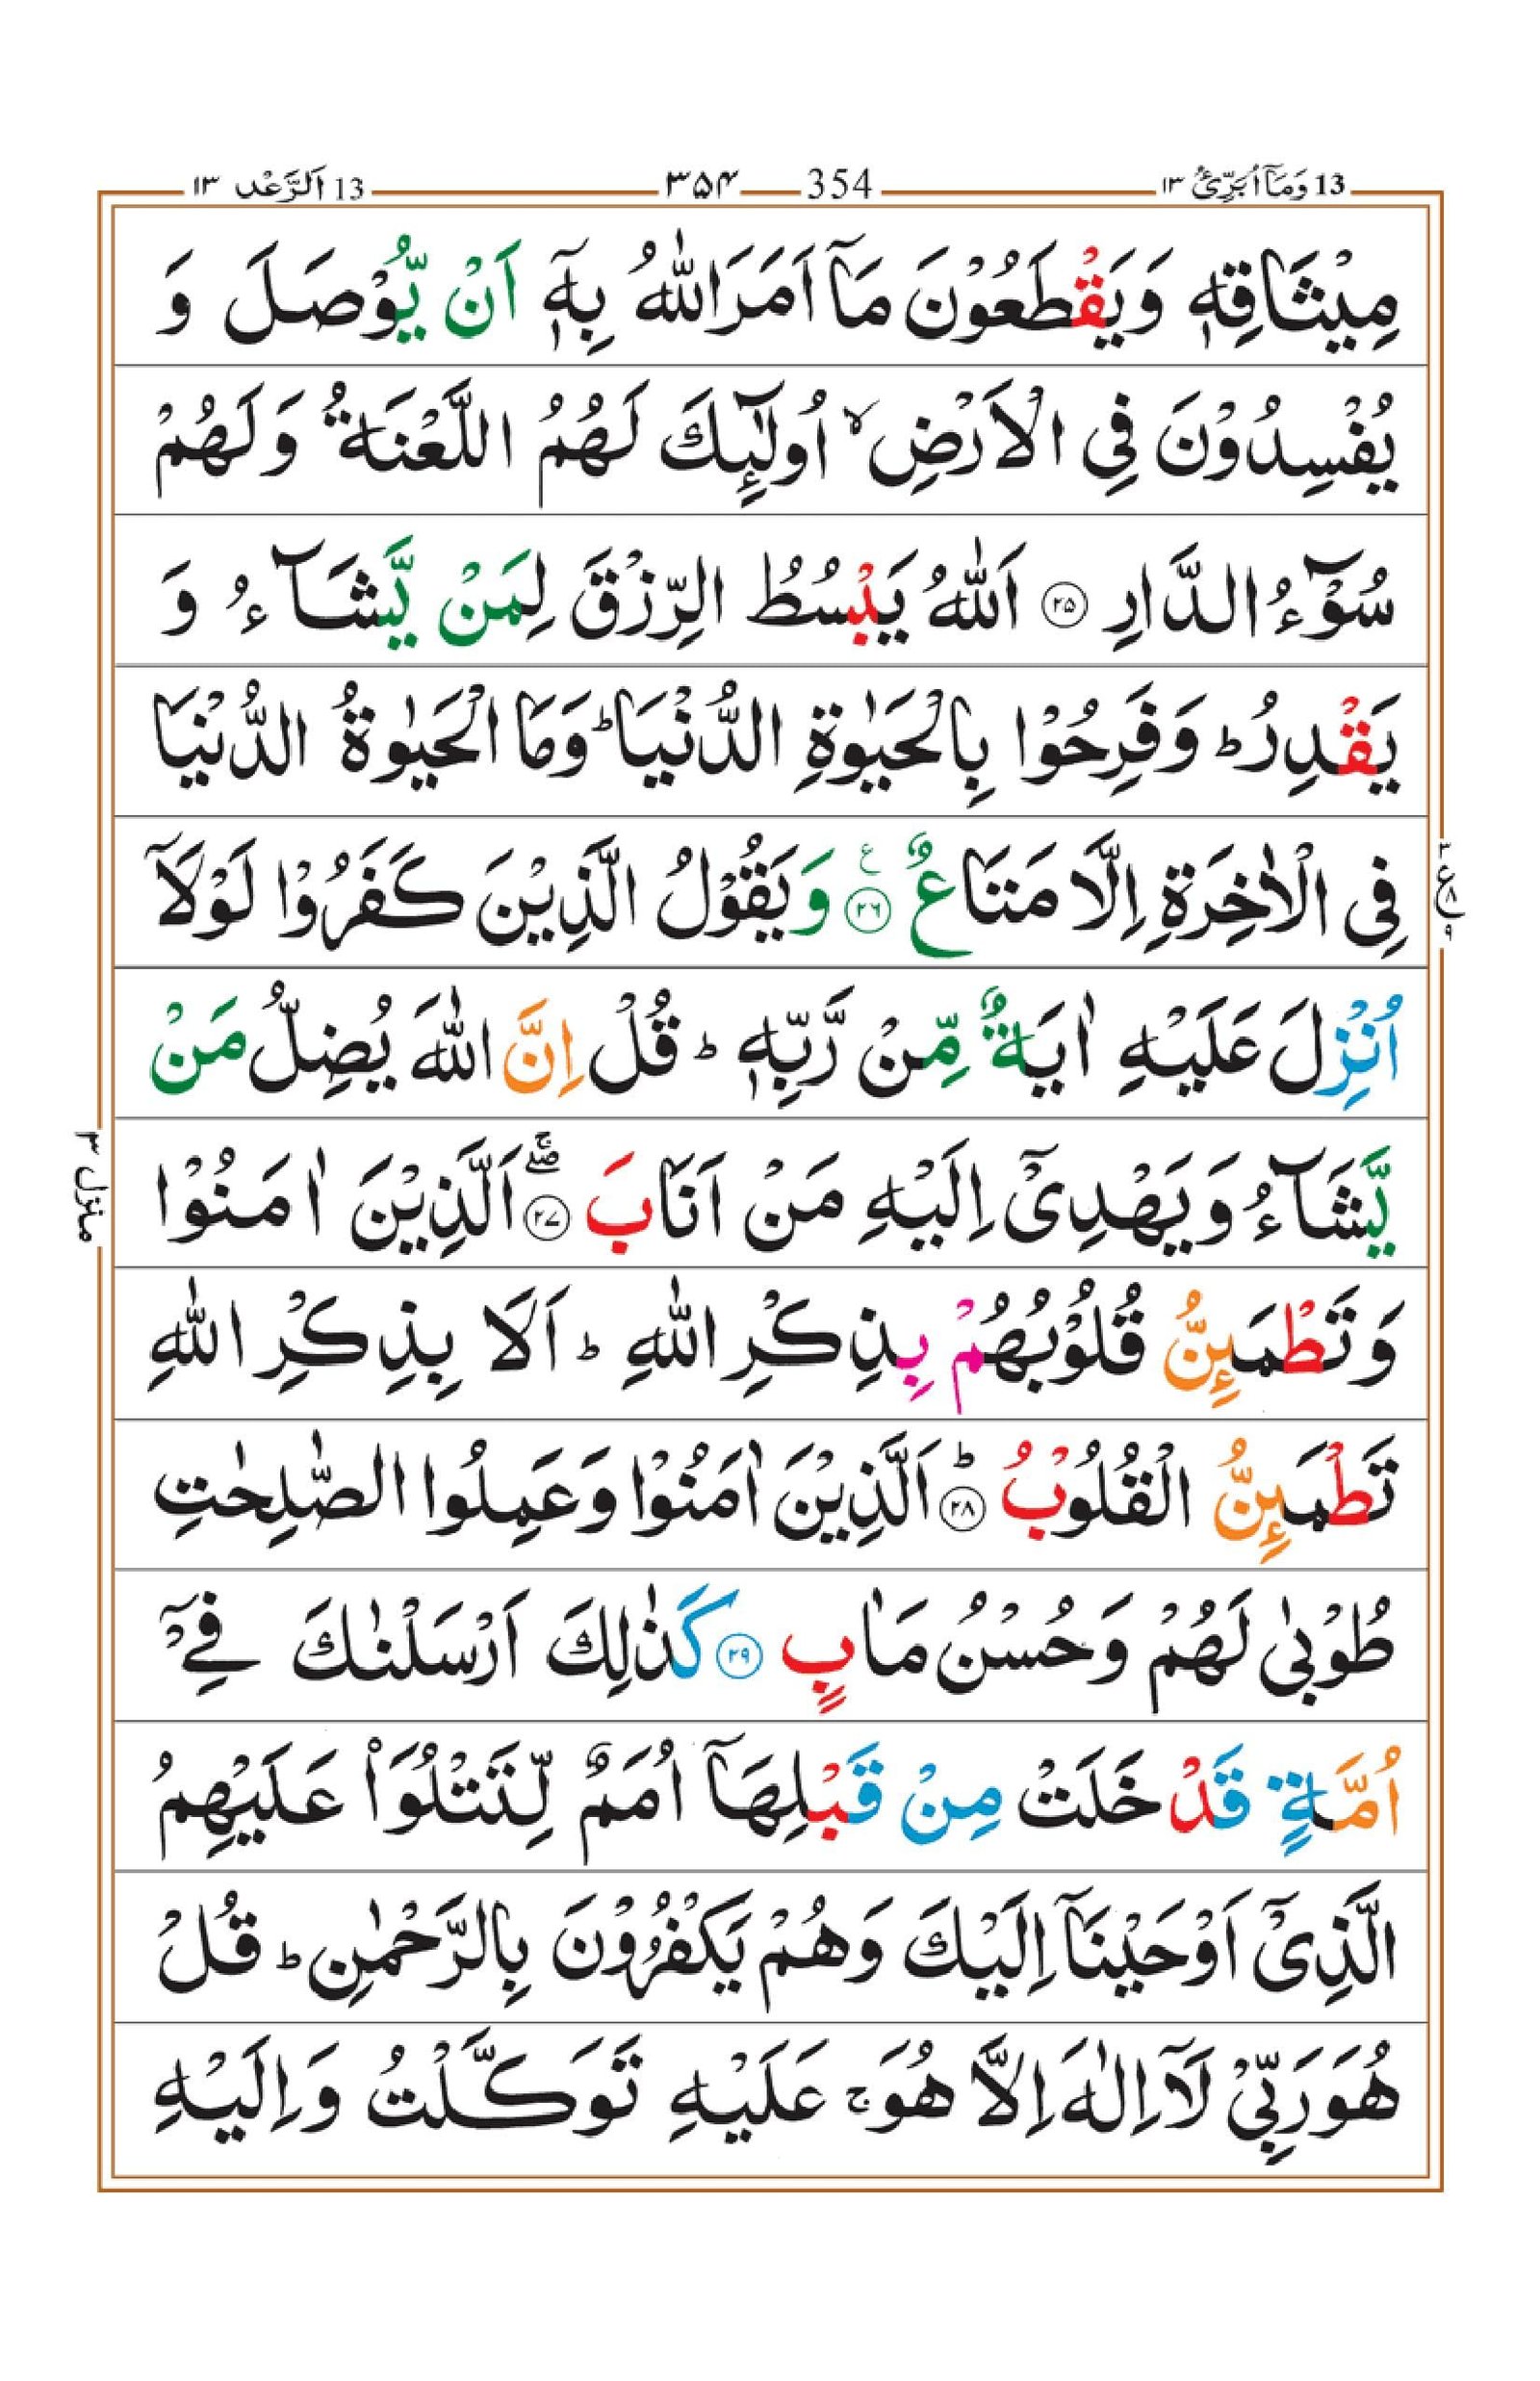 13 وَمَآ اُبَرِّئُ ١٣ 354 ٣٥٤ 13 اَلرَّعْد ١٣
مِيْثَاقِهٖ وَيَقْطَعُوْنَ مَآ اَمَرَ اللّٰهُ بِهٖۤ اَنْ يُّوْصَلَ وَ
يُفْسِدُوْنَ فِي الْاَرْضِ ۙ اُولٰٓئِكَ لَهُمُ اللَّعْنَةُ وَلَهُمْ
سُوْٓءُ الدَّارِ ۝٢٥ اَللّٰهُ يَبْسُطُ الرِّزْقَ لِمَنْ يَّشَآءُ وَ
يَقْدِرُ ؕ وَفَرِحُوْا بِالْحَيٰوةِ الدُّنْيَا ؕ وَمَا الْحَيٰوةُ الدُّنْيَا
فِي الْاٰخِرَةِ اِلَّا مَتَاعٌ ۝٢٦ ع وَيَقُوْلُ الَّذِيْنَ كَفَرُوْا لَوْلَآ
ع ٨ ٩
اُنْزِلَ عَلَيْهِ اٰيَةٌ مِّنْ رَّبِّهٖ ؕ قُلْ اِنَّ اللّٰهَ يُضِلُّ مَنْ
يَّشَآءُ وَيَهْدِيْٓ اِلَيْهِ مَنْ اَنَابَ ۝٢٧ ۖۚ اَلَّذِيْنَ اٰمَنُوْا
منزل ٣
وَتَطْمَئِنُّ قُلُوْبُهُمْ بِذِكْرِ اللّٰهِ ؕ اَلَا بِذِكْرِ اللّٰهِ
تَطْمَئِنُّ الْقُلُوْبُ ۝٢٨ ؕ اَلَّذِيْنَ اٰمَنُوْا وَعَمِلُوا الصّٰلِحٰتِ
طُوْبٰى لَهُمْ وَحُسْنُ مَاٰبٍ ۝٢٩ كَذٰلِكَ اَرْسَلْنٰكَ فِيْٓ
اُمَّةٍ قَدْ خَلَتْ مِنْ قَبْلِهَآ اُمَمٌ لِّتَتْلُوَا۟ عَلَيْهِمُ
الَّذِيْٓ اَوْحَيْنَآ اِلَيْكَ وَهُمْ يَكْفُرُوْنَ بِالرَّحْمٰنِ ؕ قُلْ
هُوَ رَبِّيْ لَآ اِلٰهَ اِلَّا هُوَ ۚ عَلَيْهِ تَوَكَّلْتُ وَاِلَيْهِ